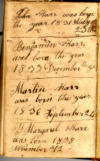 John Marr was born
the year 1831 August
23
Benjamin Marr
was born the year
1833 December
Martin Marr
was born the year
1836 September 24
Margaret Marr
was born 1838
November